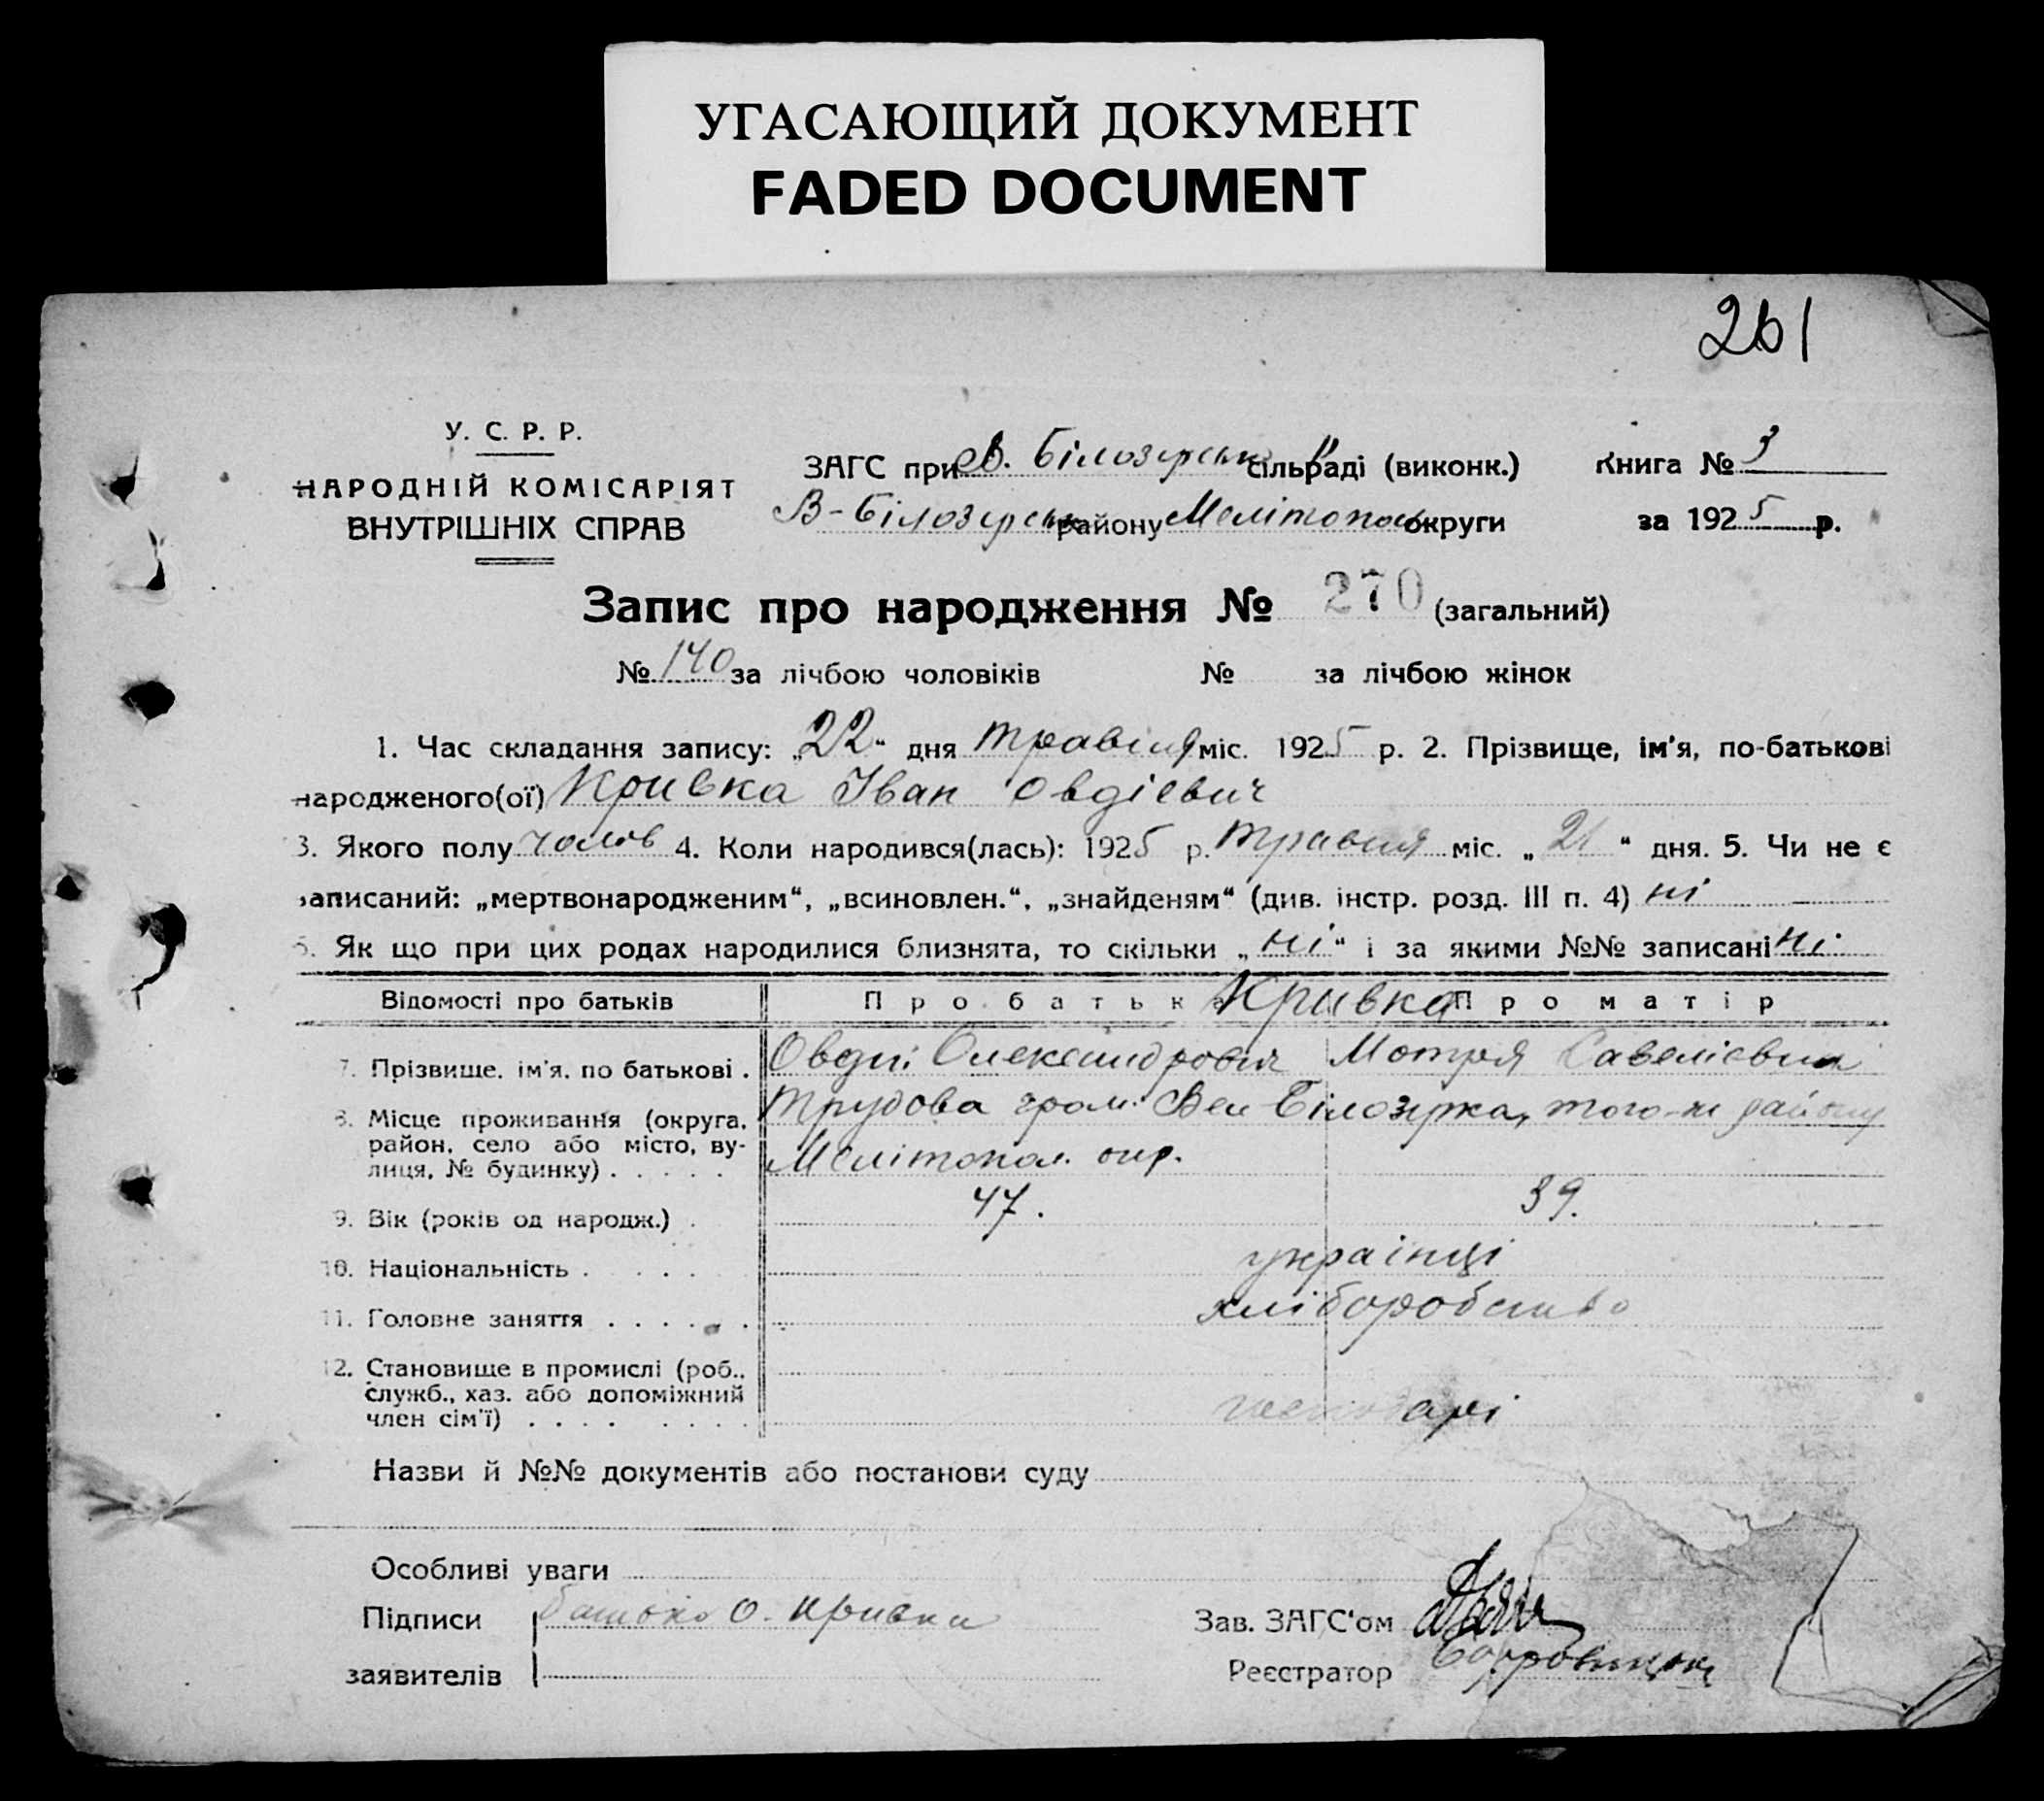 УГАСАЮЩИЙ ДОКУМЕНТ
FADED DOCUMENT
261
У. С. Р. Р.
НАРОДНІЙ КОМІСАРІЯТ
ВНУТРІШНІХ СПРАВ
ЗАГС при В. Білозерськ сільраді (виконк.)
В-Білозерськ району Мелітополь округи
Книга № 3
за 1925 р.
Запис про народження № 270 (загальний)
№ 140 за лічбою чоловіків № за лічбою жінок
1. Час складання запису: „22“ дня травня міс. 1925 р. 2. Прізвище, ім'я, по-батькові
народженого(ої) Кривка Іван Овдієвич
3. Якого полу чолов 4. Коли народився(лась): 1925 р. травня міс. „21“ дня. 5. Чи не є
записаний: „мертвонародженим“, „всиновлен.“, „знайденям“ (див. інстр. розд. III п. 4) ні
6. Як що при цих родах народилися близнята, то скільки „ні“ і за якими №№ записані ні
Відомості про батьків Про батька Кривка Про матір
7. Прізвище, ім'я, по батькові . Овдій Олександрович Мотря Савелієвна
8. Місце проживання (округа, Трудова гром. Вел Білозерка, того-ж району
район, село або місто, ву-
лиця, № будинку) . . . . . Мелітопол. окр.
9. Вік (років од народж.) . 47. 39.
10. Національність . . . . українці
11. Головне заняття . . . . . . хліборобство
12. Становище в промислі (роб.,
служб., хаз. або допоміжний
член сім'ї) . . . . . . . . господарі
Назви й №№ документів або постанови суду
Особливі уваги
Підписи батько О. Кривка
заявителів
Зав. ЗАГС'ом
Реєстратор